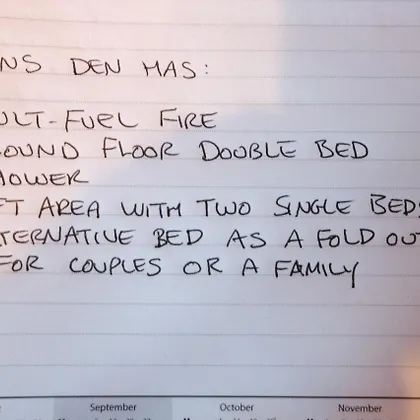 NS DEN HAS:
ULT-FUEL FIRE
OUND FLOOR DOUBLE BED
HOWER
FT AREA WITH TWO SINGLE BEDS
TERNATIVE BED AS A FOLD OU
FOR COUPLES OR A FAMILY
September October November